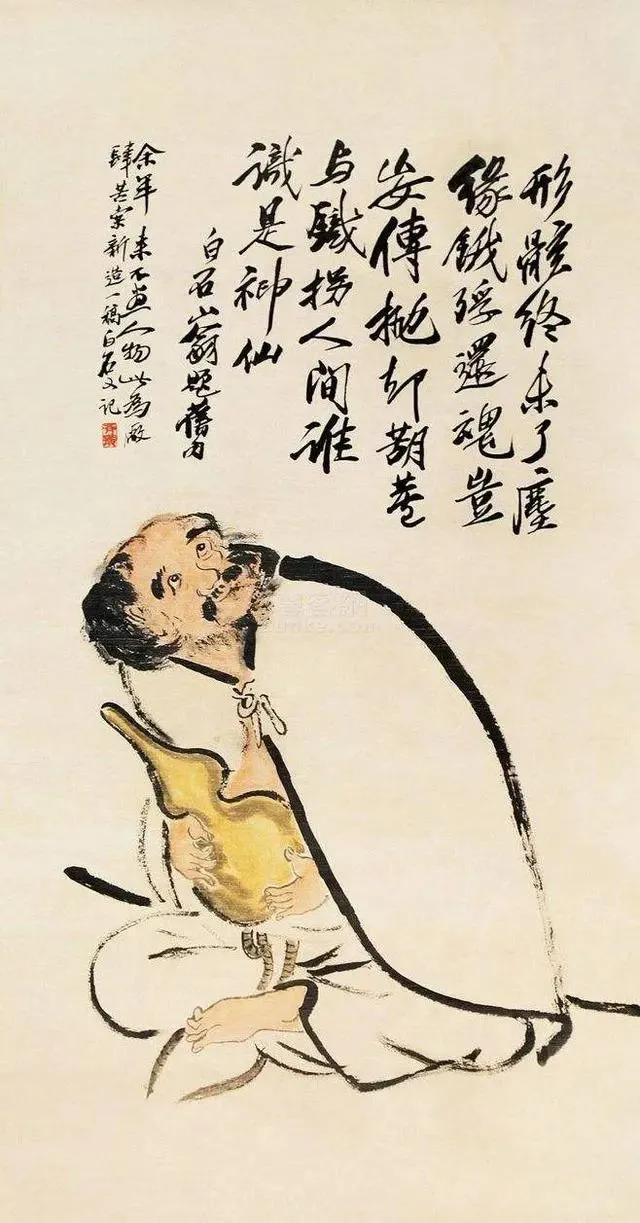 形骸終未了塵
緣餓殍還魂豈
妄傳抛却葫蘆
与鐵拐人間誰
識是神仙
白石山翁題舊句
余年来不画人物此為厰
肆苦索新造一稿白石又記